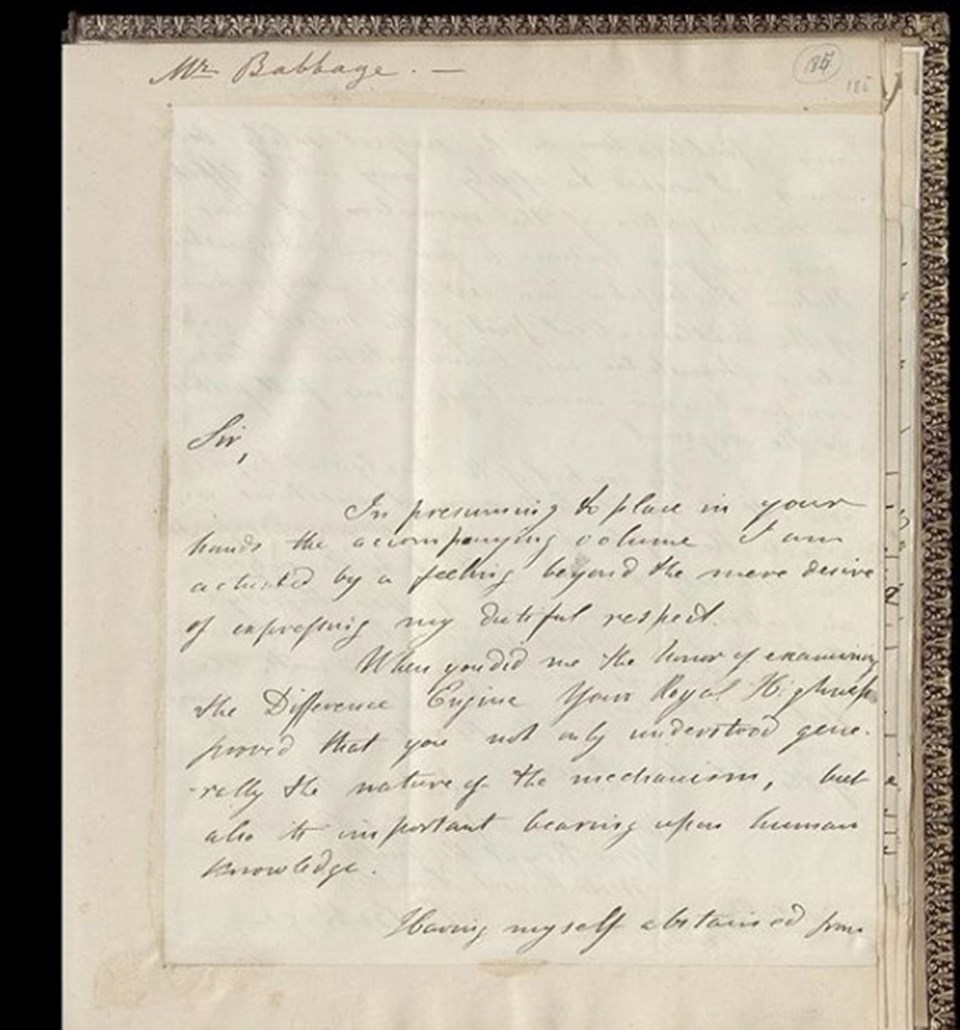 Mr Babbage. —
185
185
Sir,
In presuming to place in your
hands the accompanying volume I am
actuated by a feeling beyond the mere desire
of expressing my dutiful respect.
When you did me the honor of examining
the Difference Engine Your Royal Highness
proved that you not only understood gene-
-rally the nature of the mechanism, but
also its important bearing upon human
knowledge.
Having myself abstained from